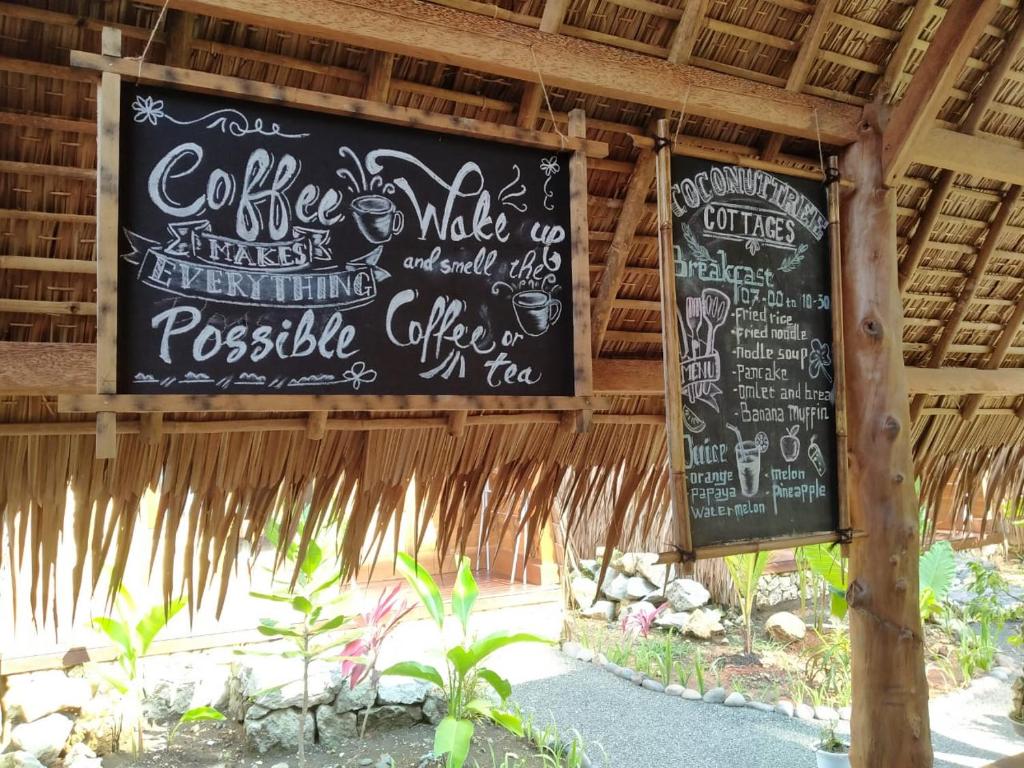 Coffee
MAKES
EVERYTHING
Possible
Wake up
and smell the
Coffee or
tea
COCONUTTREE
COTTAGES
Breakfast
07.00 to 10-30
- fried rice
- fried noodle
- noodle soup
- Pancake
- Omlet and brea
- Banana Muffin
MENU
Juice
- orange
- papaya
watermelon
- melon
- Pineapple